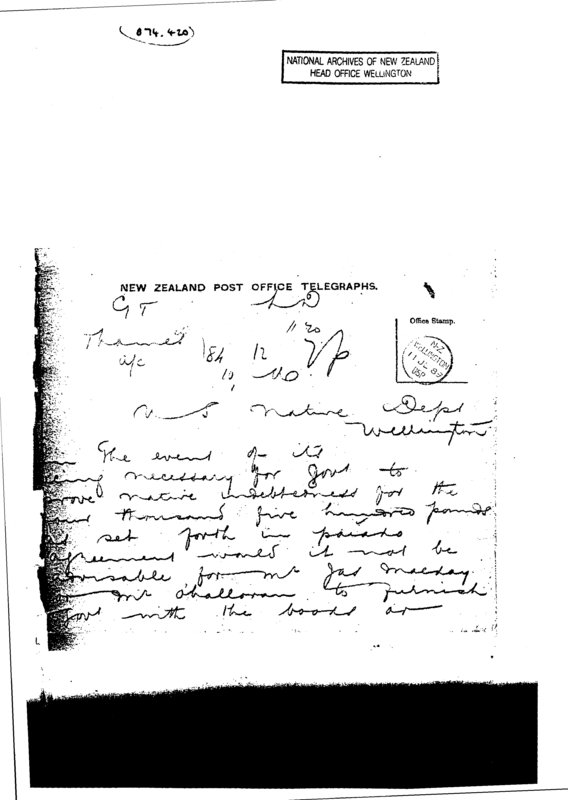 (874.420)
NATIONAL ARCHIVES OF NEW ZEALAND
HEAD OFFICE WELLINGTON
NEW ZEALAND POST OFFICE TELEGRAPHS.
GT
11 20
Office Stamp.
Thames
84 12
N.Z
WELLINGTON
11 JL 89
U S Native Dept
Wellington
The event of its
being necessary for Govt to
prove native indebtedness for the
four thousand five hundred pounds
as set forth in
agreement would it not be
advisable for Mr Jas Mackay
or Mr O'Halloran to furnish
Govt with the books or